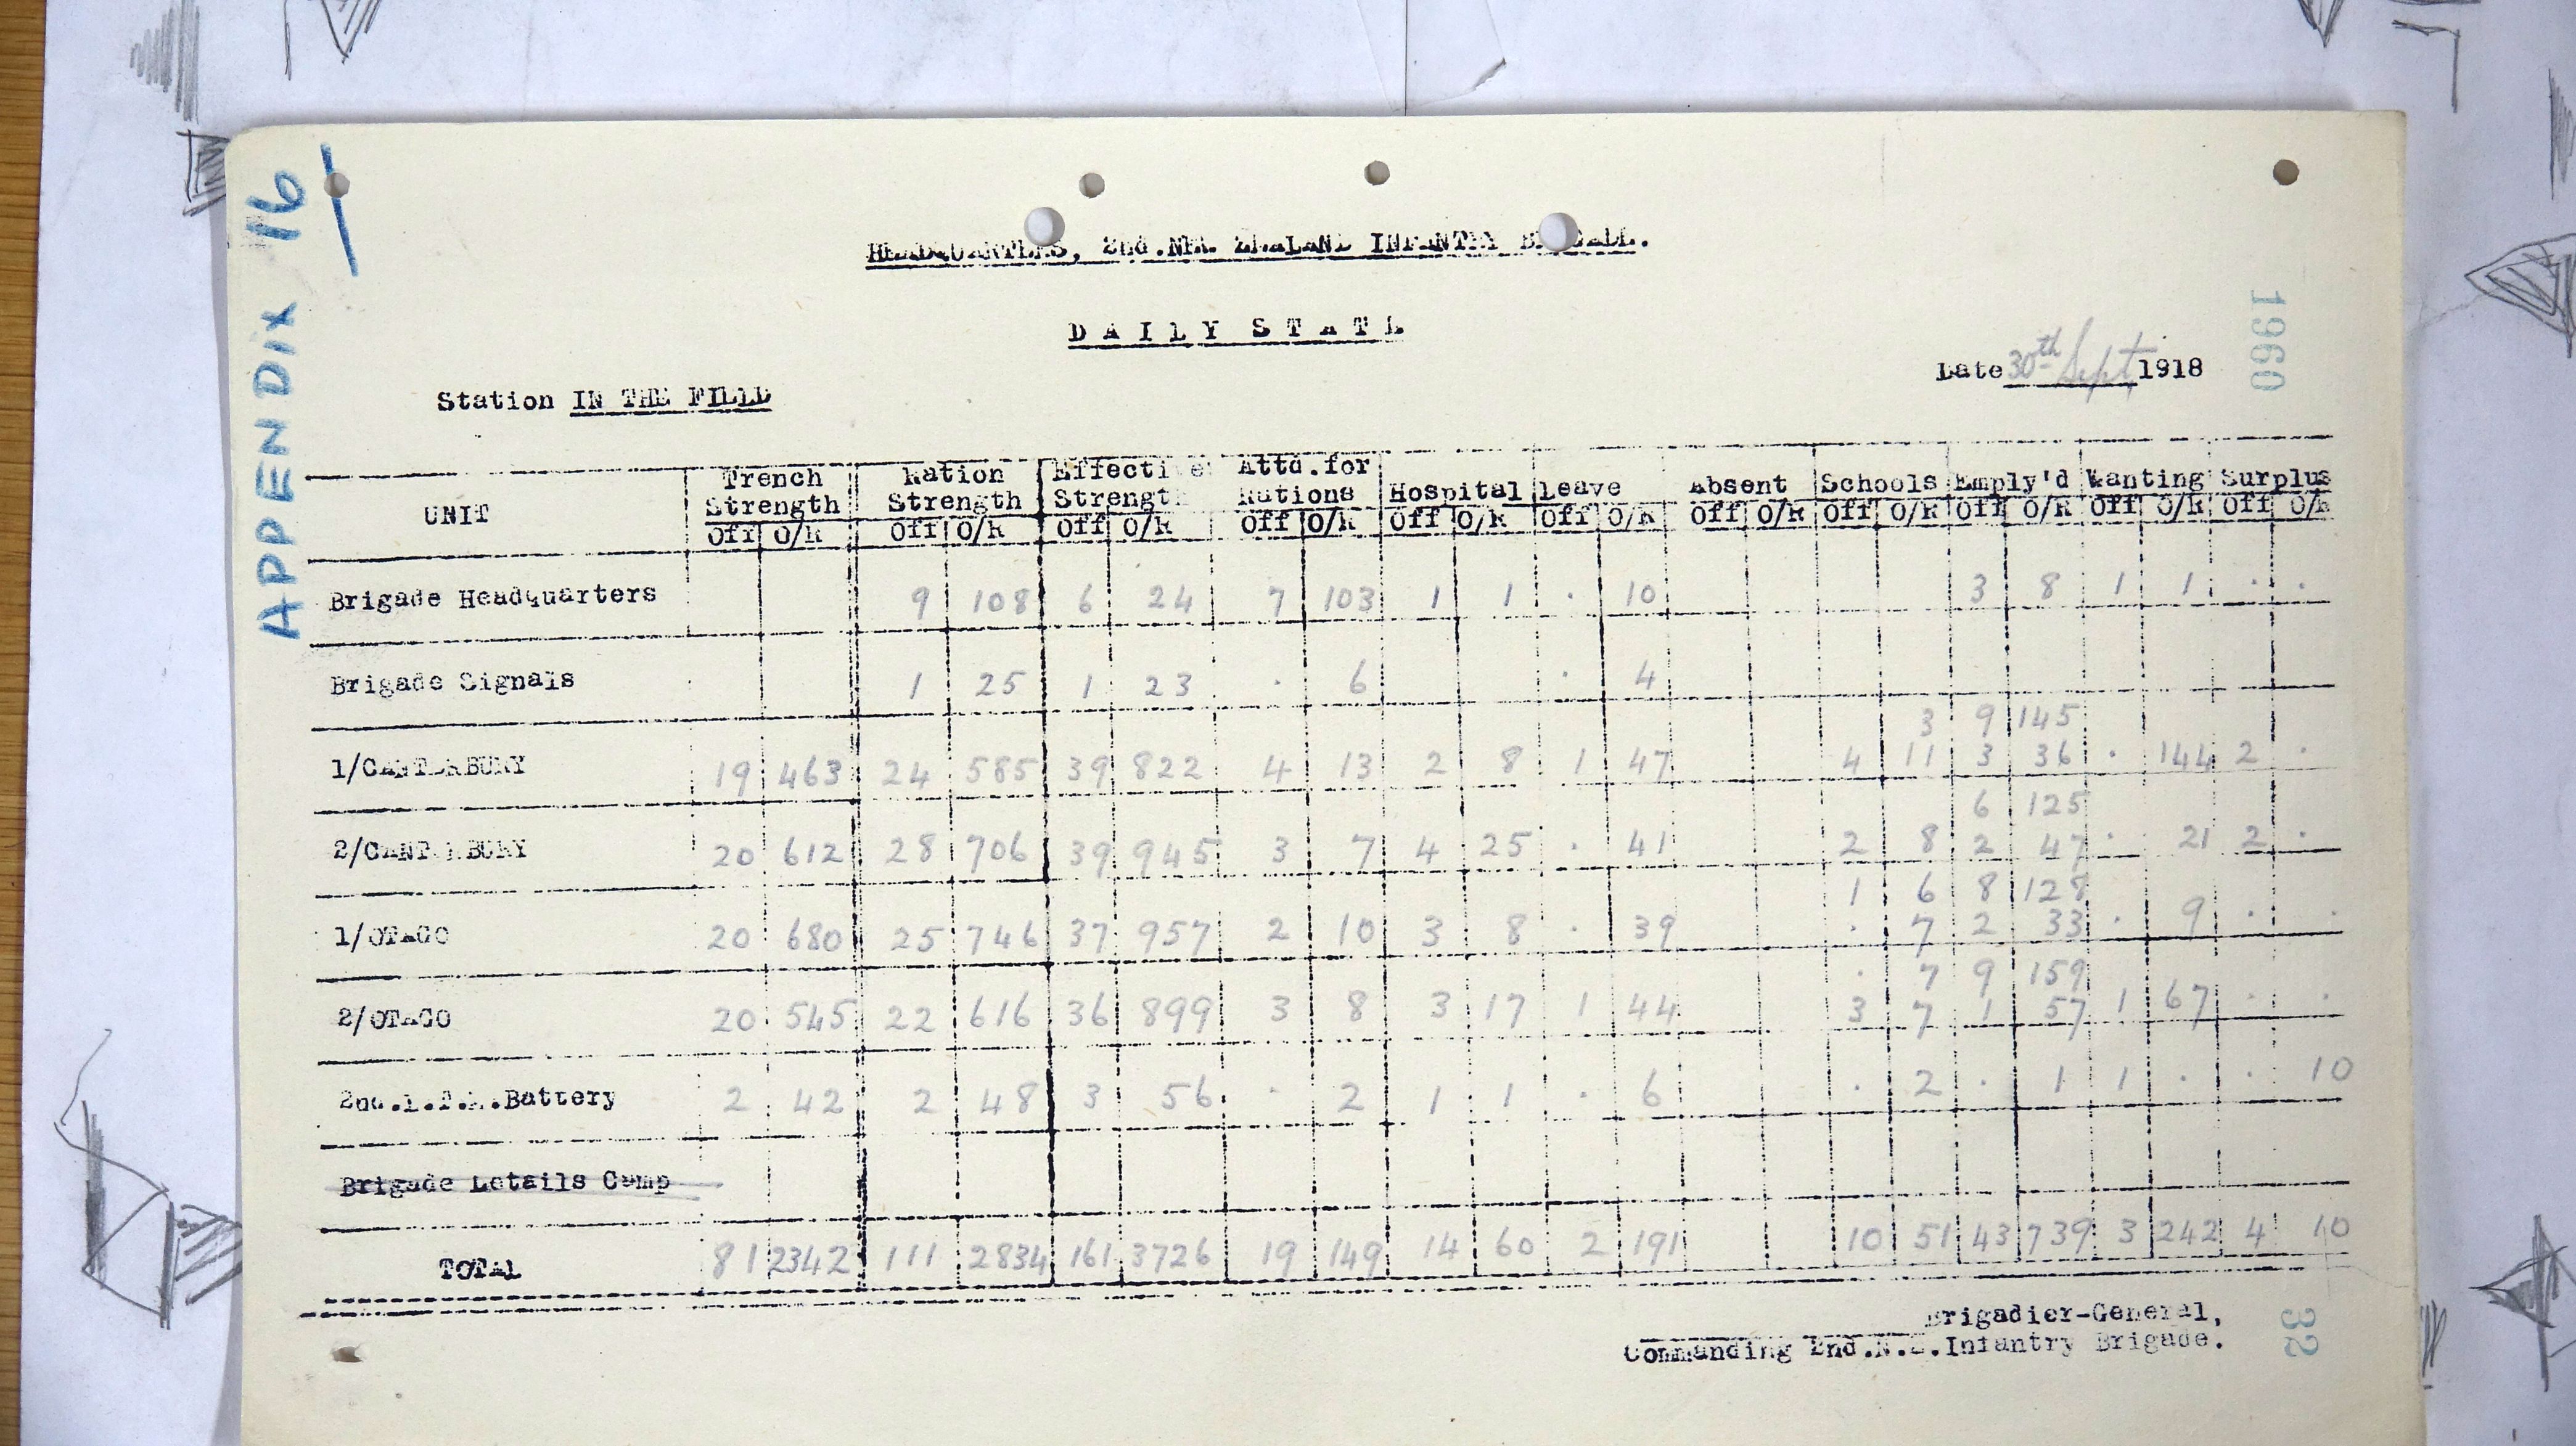 APPENDIX 16
HEADQUARTERS, 2nd.NEW ZEALAND INFANTRY BRIGADE.
DAILY STATE
1960
Date 30th Sept 1918
Station IN THE FIELD
UNIT Trench Strength Ration Strength Effective Strength Attd.for Rations Hospital Leave Absent Schools Emply'd Wanting Surplus
Off O/R Off O/R Off O/R Off O/R Off O/R Off O/R Off O/R Off O/R Off O/R Off O/R Off O/R
Brigade Headquarters 9 108 6 24 7 103 1 1 . 10 3 8 1 1 . .
Brigade Signals 1 25 1 23 . 6 . 4
3 9 145
1/CANTERBURY 19 463 24 585 39 822 4 13 2 8 1 47 4 11 3 36 . 144 2 .
6 125
2/CANTERBURY 20 612 28 706 39 945 3 7 4 25 . 41 2 8 2 47 . 21 2 .
1 6 8 128
1/OTAGO 20 680 25 746 37 957 2 10 3 8 . 39 . 7 2 33 . 9 . .
. 7 9 159
2/OTAGO 20 545 22 616 36 899 3 8 3 17 1 44 3 7 1 57 1 67 . .
2nd.L.T.M.Battery 2 42 2 48 3 56 . 2 1 1 . 6 . 2 . 1 1 . . 10
Brigade Details Camp
TOTAL 81 2342 111 2834 161 3726 19 149 14 60 2 191 10 51 43 739 3 242 4 10
Brigadier-General,
Commanding 2nd.N.Z.Infantry Brigade.
32